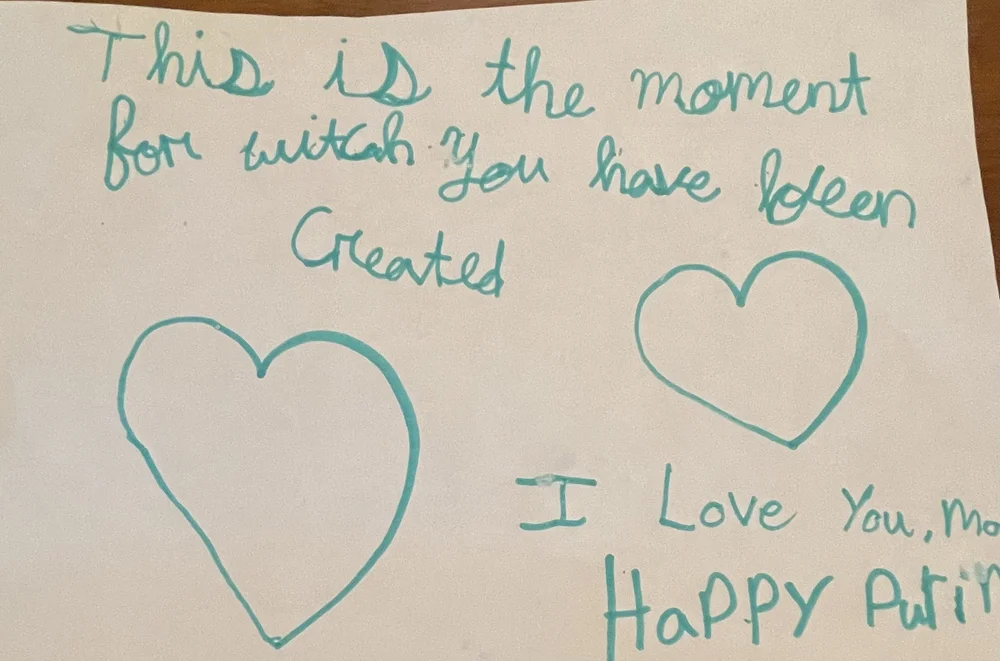 This is the moment
for witcah you have been
Created
I Love You, Mo
Happy Purin